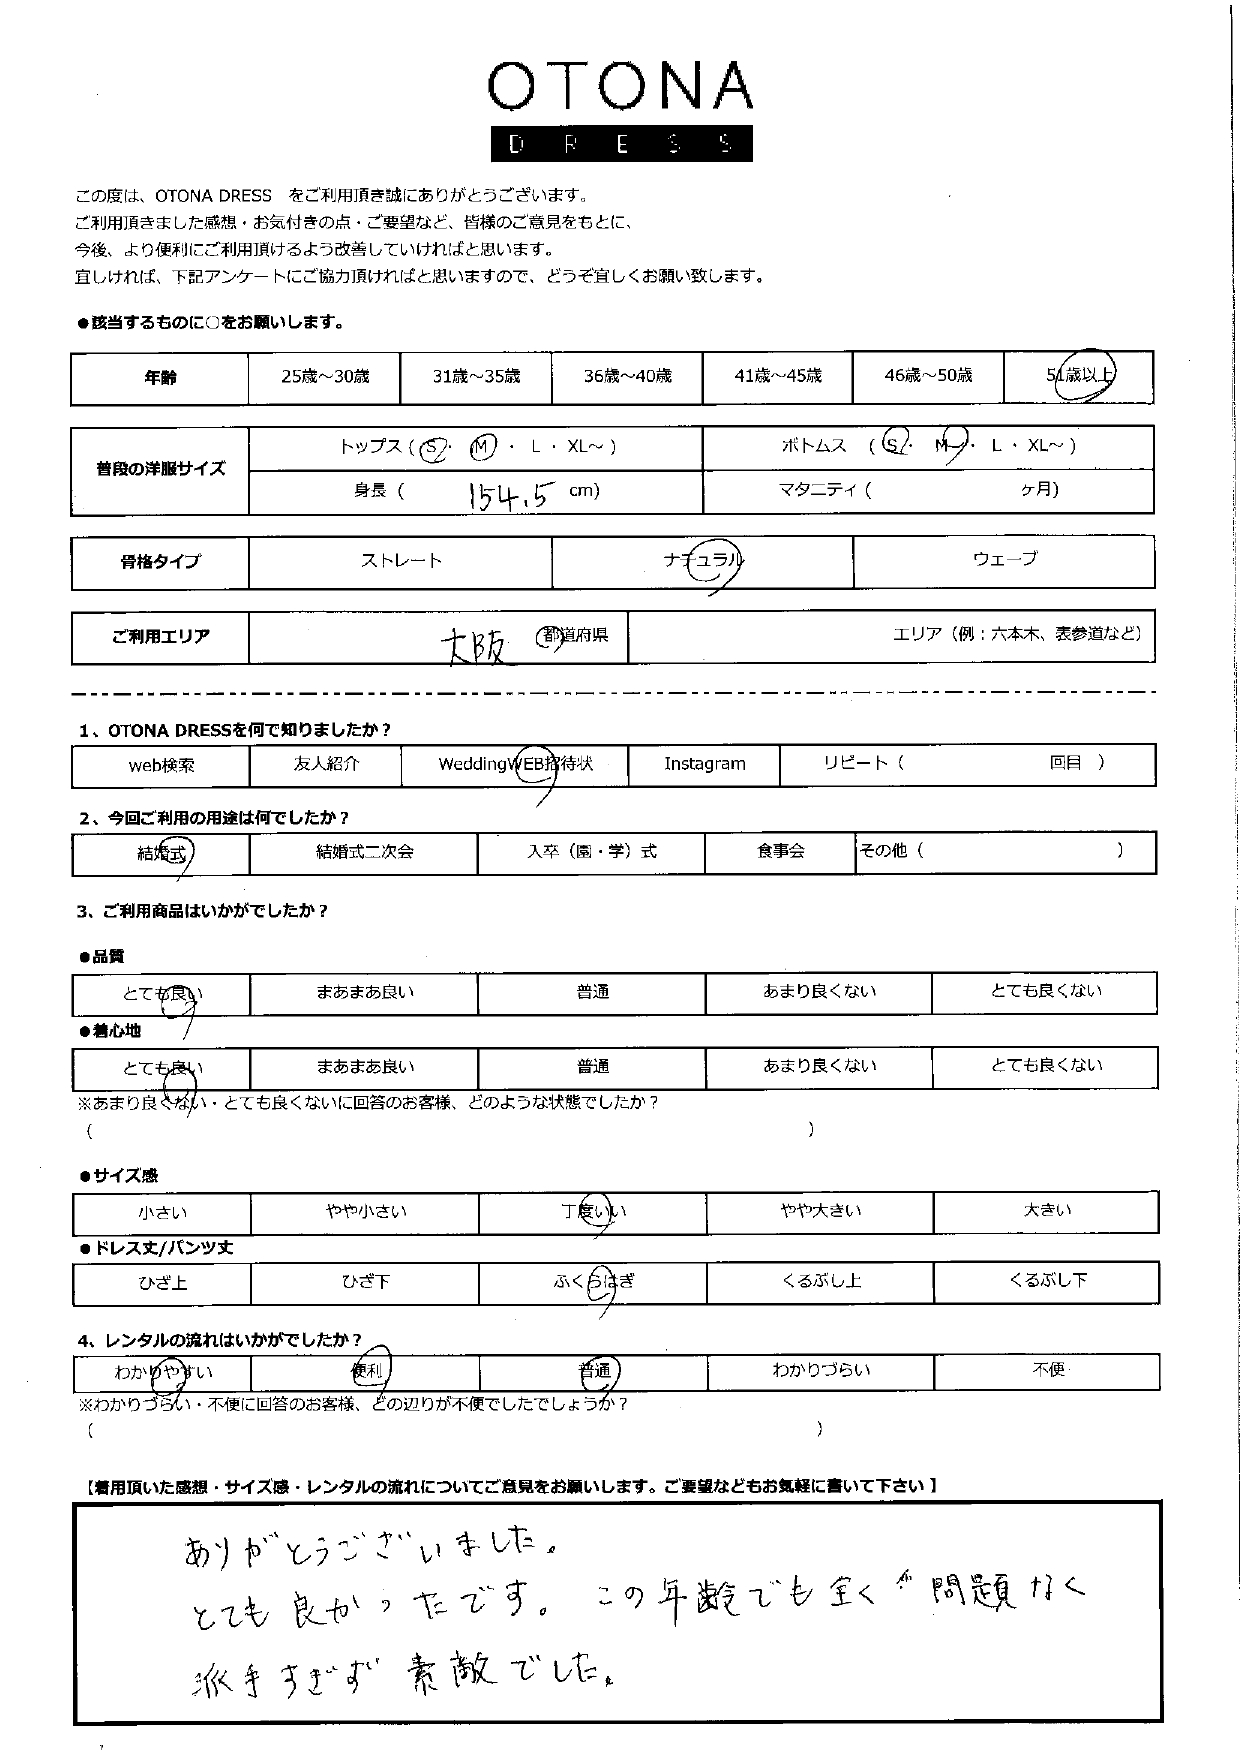 OTONA
DRESS
この度は、OTONA DRESS　をご利用頂き誠にありがとうございます。
ご利用頂きました感想・お気付きの点・ご要望など、皆様のご意見をもとに、
今後、より便利にご利用頂けるよう改善していければと思います。
宜しければ、下記アンケートにご協力頂ければと思いますので、どうぞ宜しくお願い致します。
●該当するものに○をお願いします。
年齢 25歳～30歳 31歳～35歳 36歳～40歳 41歳～45歳 46歳～50歳 51歳以上
普段の洋服サイズ トップス（ S ・ M ・ L ・ XL～ ） ボトムス （ S ・ M ・ L ・ XL～ ）
身長（ 154.5 cm） マタニティ（ ヶ月）
骨格タイプ ストレート ナチュラル ウェーブ
ご利用エリア 大阪 都道府県 エリア（例：六本木、表参道など）
1、OTONA DRESSを何で知りましたか？
web検索 友人紹介 WeddingWEB招待状 Instagram リピート（ 回目 ）
2、今回ご利用の用途は何でしたか？
結婚式 結婚式二次会 入卒（園・学）式 食事会 その他（ ）
3、ご利用商品はいかがでしたか？
●品質
とても良い まあまあ良い 普通 あまり良くない とても良くない
●着心地
とても良い まあまあ良い 普通 あまり良くない とても良くない
※あまり良くない・とても良くないに回答のお客様、どのような状態でしたか？
（ ）
●サイズ感
小さい やや小さい 丁度いい やや大きい 大きい
●ドレス丈/パンツ丈
ひざ上 ひざ下 ふくらはぎ くるぶし上 くるぶし下
4、レンタルの流れはいかがでしたか？
わかりやすい 便利 普通 わかりづらい 不便
※わかりづらい・不便に回答のお客様、どの辺りが不便でしたでしょうか？
（ ）
【着用頂いた感想・サイズ感・レンタルの流れについてご意見をお願いします。ご要望などもお気軽に書いて下さい】
ありがとうございました。
とても良かったです。この年齢でも全く問題なく
派手すぎず素敵でした。